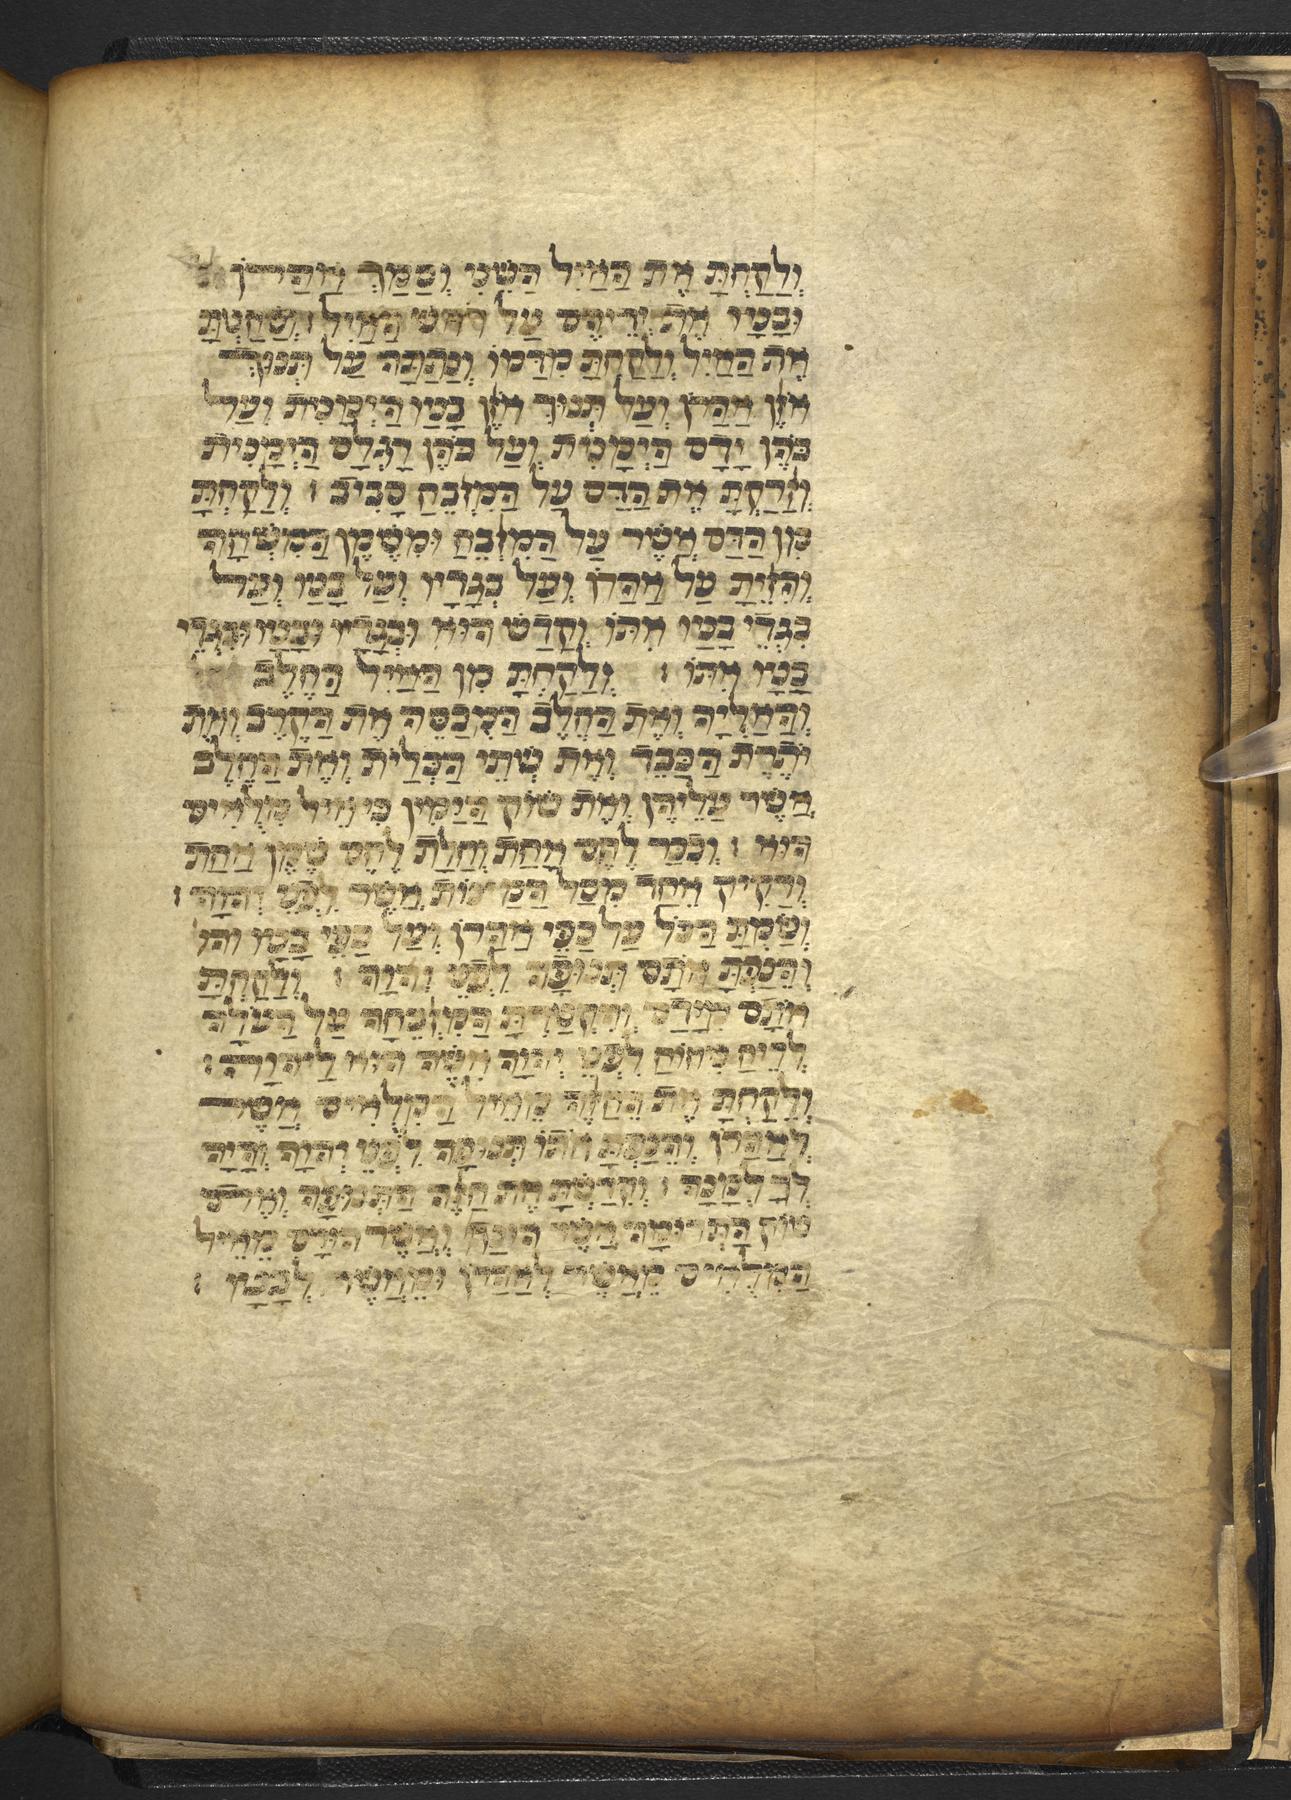 וְלָקַחְתָּ אֵת הַאַיִל הַשֵּׁנִי וְסָמַךְ אַהֲרֹן
וּבָנָיו אֶת יְדֵיהֶם עַל רֹאשׁ הָאַיִל : וְשָׁחַטְתָּ
אֶת הַאַיִל וְלָקַחְתָּ מִדָּמוֹ וְנָתַתָּה עַל תְּנוּךְ
אֹזֶן אַהֲרֹן וְעַל תְּנוּךְ אֹזֶן בָּנָיו הַיְמָנִית וְעַל
בֹּהֶן יָדָם הַיְמָנִית וְעַל בֹּהֶן רַגְלָם הַיְמָנִית
וְזָרַקְתָּ אֶת הַדָּם עַל הַמִּזְבֵּחַ סָבִיב : וְלָקַחְתָּ
מִן הַדָּם אֲשֶׁר עַל הַמִּזְבֵּחַ וּמִשֶּׁמֶן הַמִּשְׁחָה
וְהִזֵּיתָ עַל אַהֲרֹן וְעַל בְּגָדָיו וְעַל בָּנָיו וְעַל
בִּגְדֵי בָנָיו אִתּוֹ וְקָדַשׁ הוּא וּבְגָדָיו וּבָנָיו וּבִגְדֵי
בָנָיו אִתּוֹ : וְלָקַחְתָּ מִן הָאַיִל הַחֵלֶב
וְהָאַלְיָה וְאֶת הַחֵלֶב הַמְכַסֶּה אֶת הַקֶּרֶב וְאֵת
יֹתֶרֶת הַכָּבֵד וְאֵת שְׁתֵּי הַכְּלָיֹת וְאֶת הַחֵלֶב
אֲשֶׁר עֲלֵיהֶן וְאֵת שׁוֹק הַיָּמִין כִּי אֵיל מִלֻּאִים
הוּא : וְכִכַּר לֶחֶם אַחַת וְחַלַּת לֶחֶם שֶׁמֶן אַחַת
וְרָקִיק אֶחָד מִסַּל הַמַּצּוֹת אֲשֶׁר לִפְנֵי יְהוָה :
וְשַׂמְתָּ הַכֹּל עַל כַּפֵּי אַהֲרֹן וְעַל כַּפֵּי בָנָיו
וְהֵנַפְתָּ אֹתָם תְּנוּפָה לִפְנֵי יְהוָה : וְלָקַחְתָּ
אֹתָם מִיָּדָם וְהִקְטַרְתָּ הַמִּזְבֵּחָה עַל הָעֹלָה
לְרֵיחַ נִיחוֹחַ לִפְנֵי יְהוָה אִשֶּׁה הוּא לַיהוָה :
וְלָקַחְתָּ אֶת הֶחָזֶה מֵאֵיל הַמִּלֻּאִים אֲשֶׁר
לְאַהֲרֹן וְהֵנַפְתָּ אֹתוֹ תְּנוּפָה לִפְנֵי יְהוָה וְהָיָה
לְךָ לְמָנָה : וְקִדַּשְׁתָּ אֵת חֲזֵה הַתְּנוּפָה וְאֵת
שׁוֹק הַתְּרוּמָה אֲשֶׁר הוּנַף וַאֲשֶׁר הוּרָם מֵאֵיל
הַמִּלֻּאִים מֵאֲשֶׁר לְאַהֲרֹן וּמֵאֲשֶׁר לְבָנָיו :